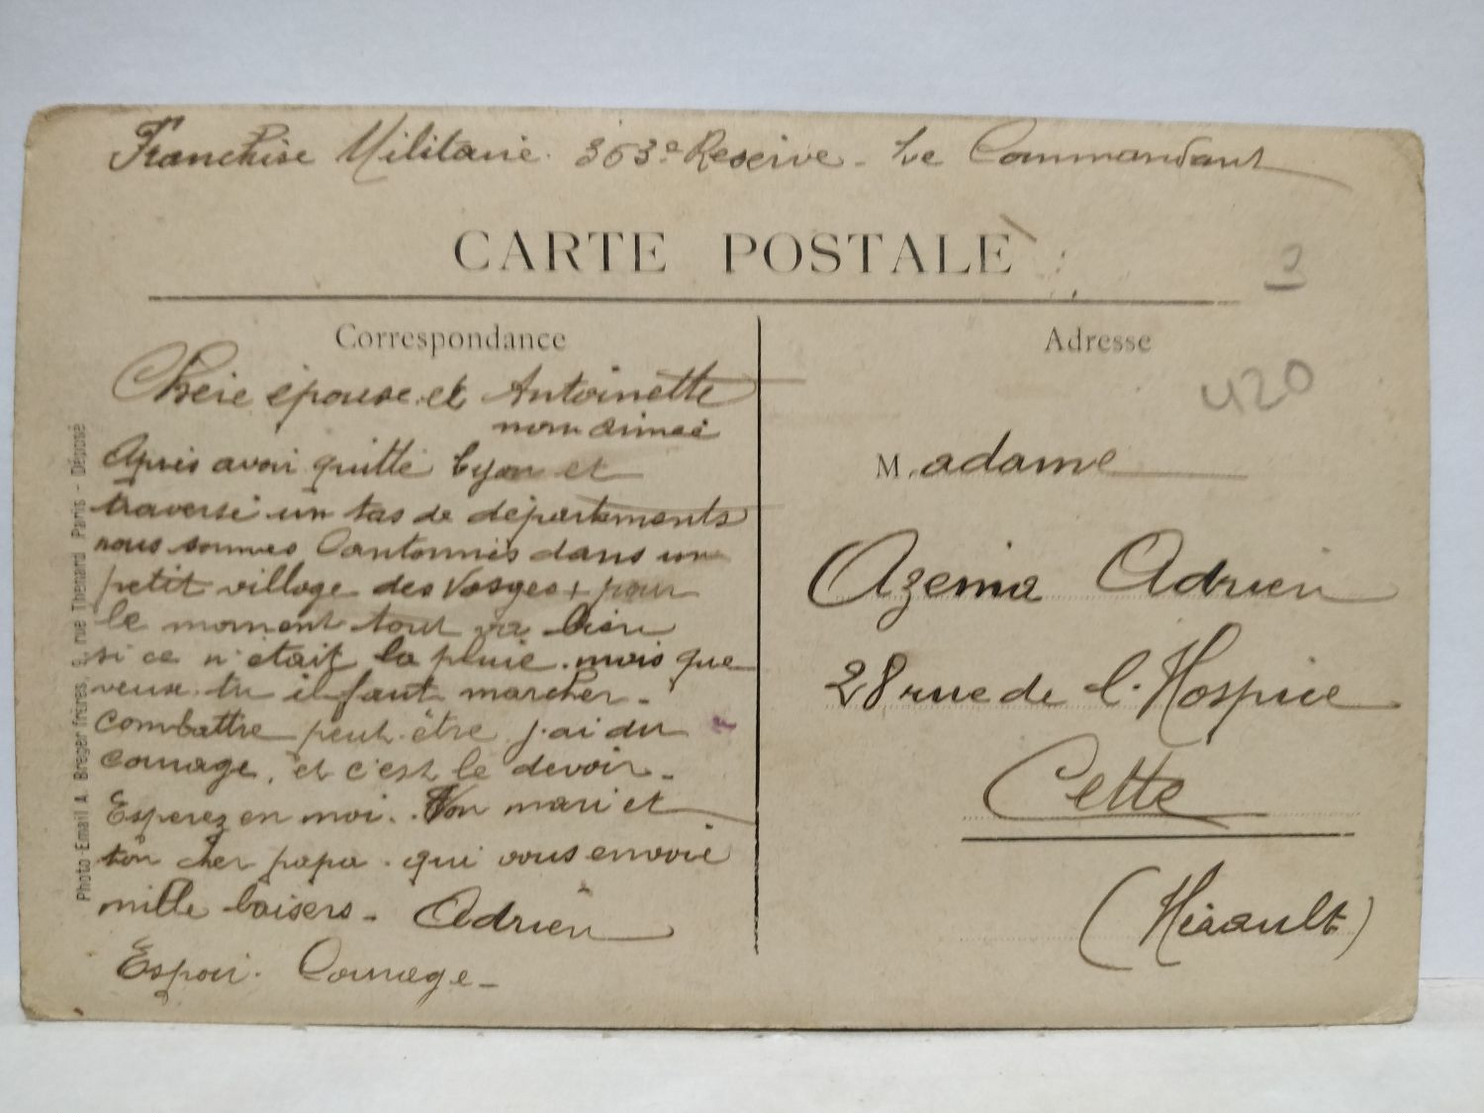 Franchise Militaire. 363e Reserve - Le Commandant
CARTE POSTALE
3
Correspondance
Adresse
420
Chère épouse et Antoinette
mon aimée
Après avoir quitté Lyon et
traversé un tas de départements
nous sommes Cantonnés dans un
petit village des Vosges + pour
le moment tout va bien
si ce n'était la pluie. mais que
veux-tu il faut marcher -
combattre peut-être j'ai du
courage, et c'est le devoir -
Esperez en moi. Ton mari et
ton cher papa. qui vous envoie
mille baisers - Adrien
Espoir. Courage -
M.adame
Azema Adrien
28 rue de l'Hospice
Cette
(Hérault)
Photo-Email A. Breger frères, 9, rue Thenard Paris - Déposé